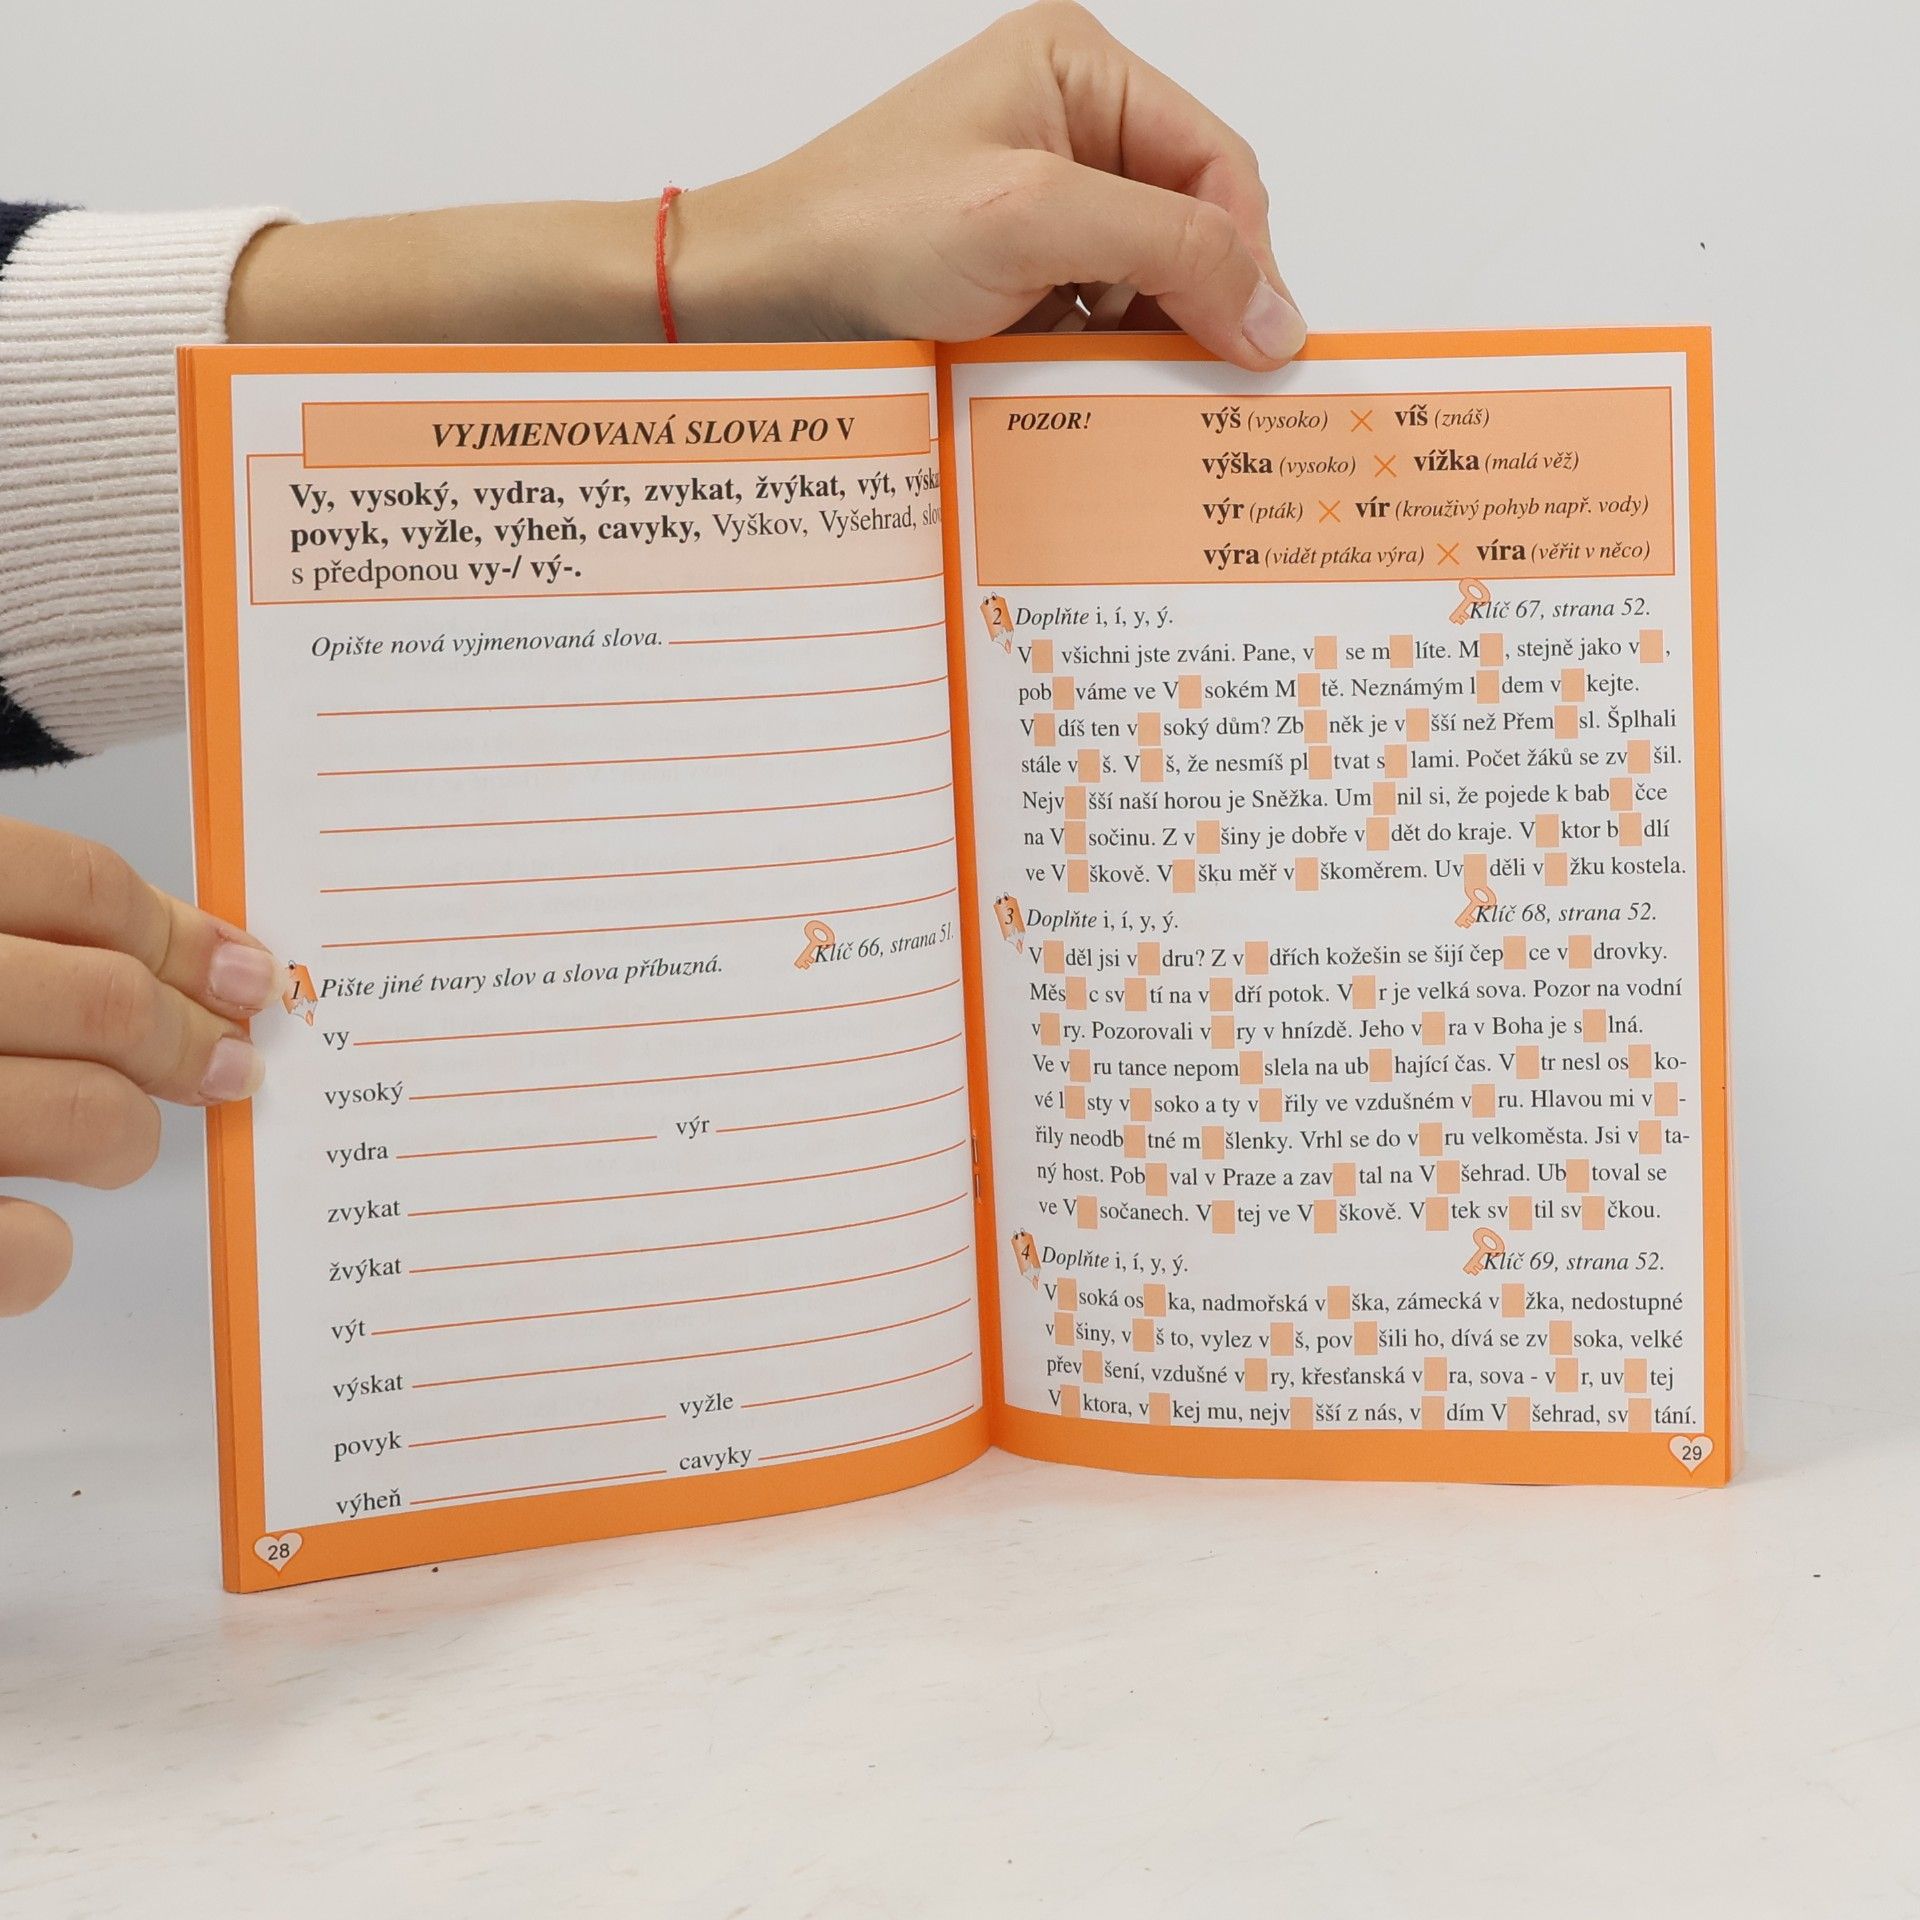 VYJMENOVANÁ SLOVA PO V
Vy, vysoký, vydra, výr, zvykat, žvýkat, výt,
povyk, vyžle, výheň, cavyky, Vyškov, Vyšehrad,
s předponou vy-/ vý-.
Opište nová vyjmenovaná slova.
Klíč 66, strana 51.
1 Pište jiné tvary slov a slova příbuzná.
vy
vysoký
vydra výr
zvykat
žvýkat
výt
výskat
povyk vyžle
výheň cavyky
28
POZOR! výš (vysoko) × víš (znáš)
výška (vysoko) × vížka (malá věž)
výr (pták) × vír (krouživý pohyb např. vody)
výra (vidět ptáka výra) × víra (věřit v něco)
2 Doplňte i, í, y, ý. Klíč 67, strana 52.
V všichni jste zváni. Pane, v se m líte. M , stejně jako v ,
pob váme ve V sokém M tě. Neznámým l dem v kejte.
V díš ten v soký dům? Zb něk je v šší než Přem sl. Šplhali
stále v š. V š, že nesmíš pl tvat s lami. Počet žáků se zv šil.
Nejv šší naší horou je Sněžka. Um nil si, že pojede k bab čce
na V sočinu. Z v šiny je dobře v dět do kraje. V ktor b dlí
ve V škově. V šku měř v škoměrem. Uv děli v žku kostela.
3 Doplňte i, í, y, ý. Klíč 68, strana 52.
V děl jsi v dru? Z v dřích kožešin se šijí čep ce v drovky.
Měs c sv tí na v dří potok. V r je velká sova. Pozor na vodní
v ry. Pozorovali v ry v hnízdě. Jeho v ra v Boha je s lná.
Ve v ru tance nepom slela na ub hající čas. V tr nesl os ko-
vé l sty v soko a ty v řily ve vzdušném v ru. Hlavou mi v -
řily neodb tné m šlenky. Vrhl se do v ru velkoměsta. Jsi v ta-
ný host. Pob val v Praze a zav tal na V šehrad. Ub toval se
ve V sočanech. V tej ve V škově. V tek sv til sv čkou.
4 Doplňte i, í, y, ý. Klíč 69, strana 52.
V soká os ka, nadmořská v ška, zámecká v žka, nedostupné
v šiny, v š to, vylez v š, pov šili ho, dívá se zv soka, velké
přev šení, vzdušné v ry, křesťanská v ra, sova - v r, uv tej
V ktora, v kej mu, nejv šší z nás, v dím V šehrad, sv tání.
29